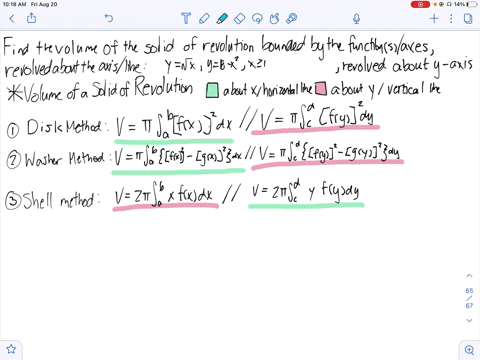 10:18 AM Fri Aug 20
14%
Find the volume of the solid of revolution bounded by the function(s)/axes,
revolved about the axis/line: y=√x, y=8-x², x≥1, revolved about y-axis
*Volume of a Solid of Revolution about x/horizontal line about y/vertical line
① Disk Method: V = π∫ₐᵇ[f(x)]²dx // V = π∫꜀ᵈ[f(y)]²dy
② Washer Method: V = π∫ₐᵇ{[f(x)]²-[g(x)]²}dx // V = π∫꜀ᵈ{[f(y)]²-[g(y)]²}dy
③ Shell method: V = 2π∫ₐᵇ x f(x)dx // V = 2π∫꜀ᵈ y f(y)dy
65
/
67